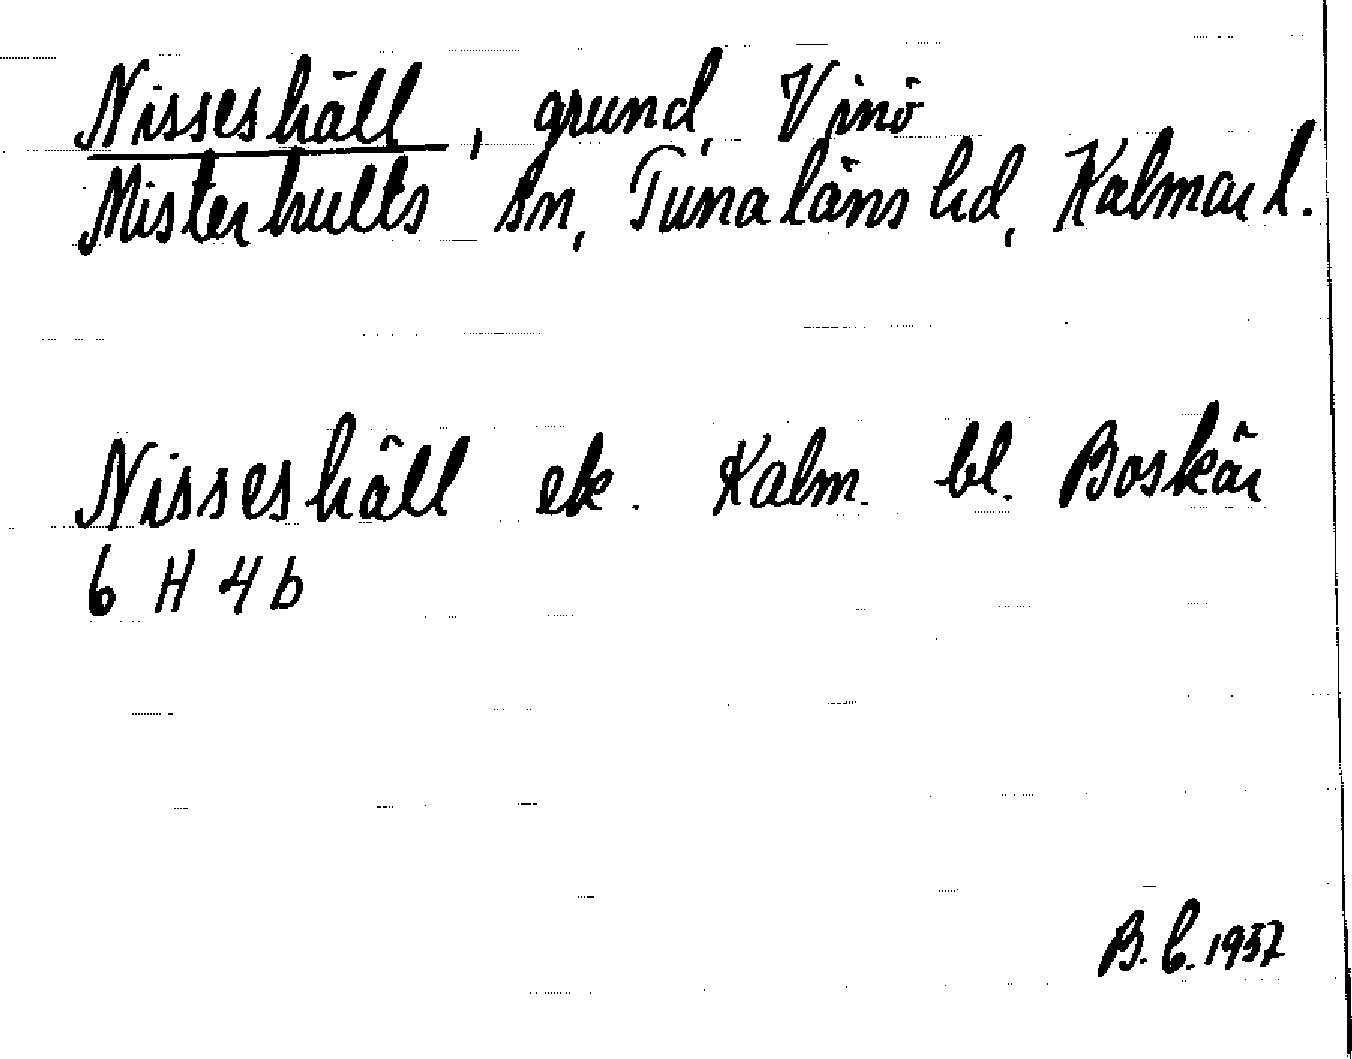 Nisseshäll, grund, Vinö
Misterhults sn, Tunaläns hd, Kalmar l.
Nisseshäll ek. Kalm. bl. Boskär
6 H 4 b
B. C. 1937